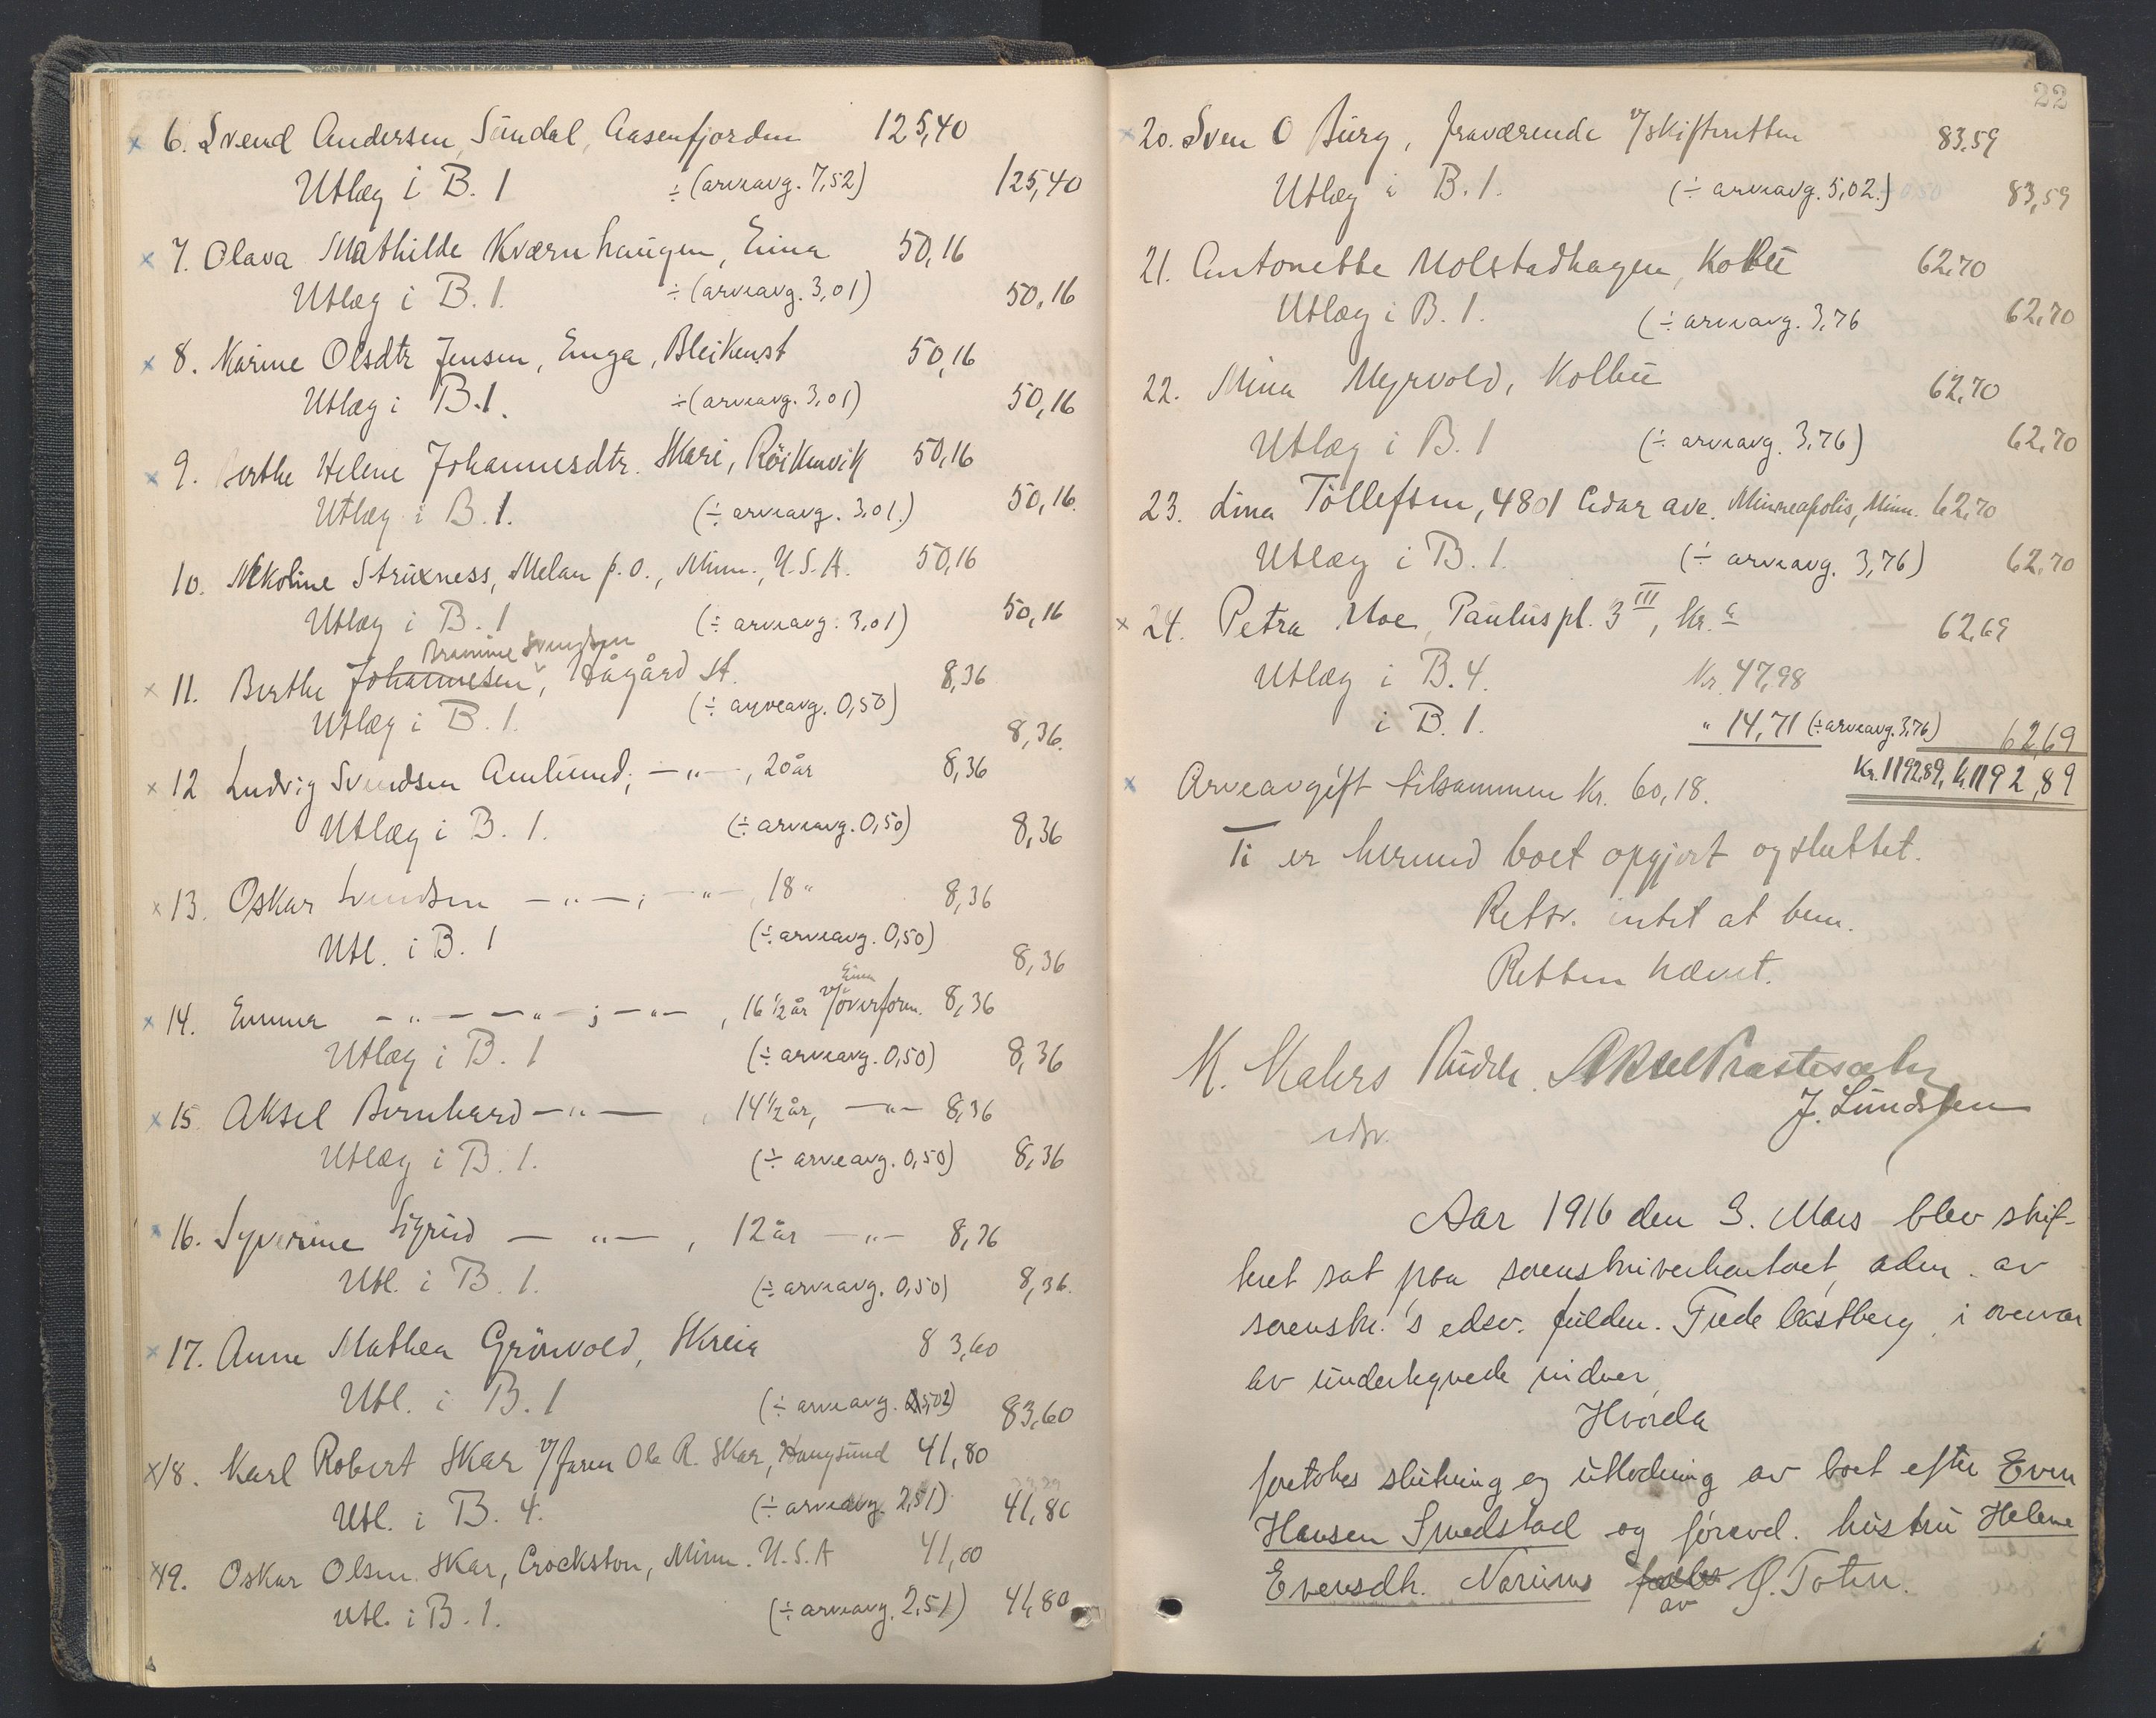 x 6. Svend Andersen, Sundal, Aasenfjorden 125,40
Utlæg i B. 1 ÷ (arveavg. 7,52) 125,40
x 7. Olava Mathilde Kværnhaugen, Eina 50,16
Utlæg i B. 1. ÷ (arveavg. 3,01) 50,16
x 8. Karine Olsdtr Jensen, Enga, Bleikenst 50,16
Utlæg i B.1. ÷ (arveavg. 3,01) 50,16
x 9. Berthe Helene Johannesdtr. Skari, Röikenvik 50,16
Utlæg i B.1. (÷ arveavg. 3,01.) 50,16.
10. Nikoline Struxness, Melan p.o., Minn., U.S.A. 50,16
Utlæg i B. 1 (÷ arveavg. 3,01) 50,16
Svendsen
x 11. Berthe Johannesen, Hågård st. 8,36
Utlæg i B. 1. (÷ arveavg. 0,50) 8,36.
x 12 Ludvig Svendsen Amlund, —"—, 20 år 8,36
Utlæg i B. 1. (÷ arveavg. 0,50) 8,36
x 13. Oskar Svendsen —"—; —"—, 18 " 8,36
Utl. i B. 1 (÷ arveavg. 0,50) 8,36
Eina
x 14. Emma —"— —"—; —"—, 16 1/2 år v/overform. 8,36
Utlæg i B. 1 (÷ arveavg. 0,50) 8,36
x 15. Aksel Bernhard —"—, 14 1/2 år, —"— 8,36
Utlæg i B. 1. (÷ arveavg. 0,50) 8,36
x 16. Syverine Sigrid —"—, 12 år —"— 8,36
Utl. i B. 1. (÷ arveavg. 0,50) 8,36.
x 17. Anne Mathea Grönvold, Skreia 83,60
Utl. i B. 1 (÷ arveavg. 5,02) 83,60
x 18. Karl Robert Skar v/faren Ole R. Skar, Haugsund 41,80
Utl. i B. 4. (÷ arveavg. 2,51) 41,80
x 19. Oskar Olsen Skar, Crockston, Minn. U.S.A 41,80
Utl. i B. 1. (÷ arveavg. 2,51) 41,80
22
x 20. Sven O Burg, fraværende v/skifteretten 83,59
Utlæg i B. 1. (÷ arveavg. 5,02.) 83,59
21. Antonette Molstadhagen, Kolbu 62,70
Utlæg i B. 1. (÷ arveavg. 3,76 62,70
22. Mina Myrvold, Kolbu 62,70
Utlæg i B. 1 (÷ arveavg. 3,76) 62,70
23. Lina Tollefsen, 4801 Cedar ave. Minneapolis, Minn. 62,70
Utlæg i B. 1. (÷ arveavg. 3,76) 62,70
x 24. Petra Moe, Paulus pl. 3 III, Kr.a 62,69
Utlæg i B. 4. Kr. 47,98
i B. 1. " 14,71 (÷ arveavg. 3,76) 62,69
x Arveavgift tilsammen Kr. 60,18. Kr. 1192,89, Kr. 1192,89
Ti er hermed boet opgjort og sluttet.
Retsv. intet at bem.
Retten hævet.
J. Lundsten
Aar 1916 den 3. Mars blev skif-
teret sat paa sorenskriverkontoret, adm. av
sorenskr.'s edsv. fuldm. Frede Castberg, i overvær
av undertegnede vidner,
Hvorda
foretokes slutning og utlodning av boet efter Even
Hansen Smedstad og forevd. hustru Helene
Evensdtr. Narums av Ö. Toten.